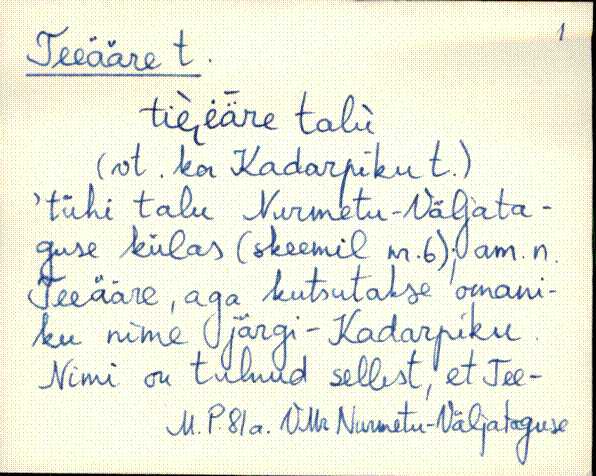 1
Teeääre t.
tiè̮ēäre talù
(vt. ka Kadarpiku t.)
'tühi talu Nurmetu-Väljata-
guse külas (skeemil nr. 6); am. n.
Teeääre, aga kutsutakse omani-
ku nime järgi - Kadarpiku.
Nimi on tulnud sellest, et Tee-
M. P. 81a. VMr Nurmetu-Väljataguse